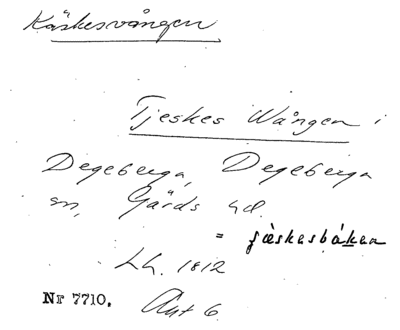 Käskesvången
Tjeskes Wången i
Degeberga, Degeberga
sn, Gärds hd.
= ſæskesbåken
Lh. 1812
Nr 7710. Akt 6